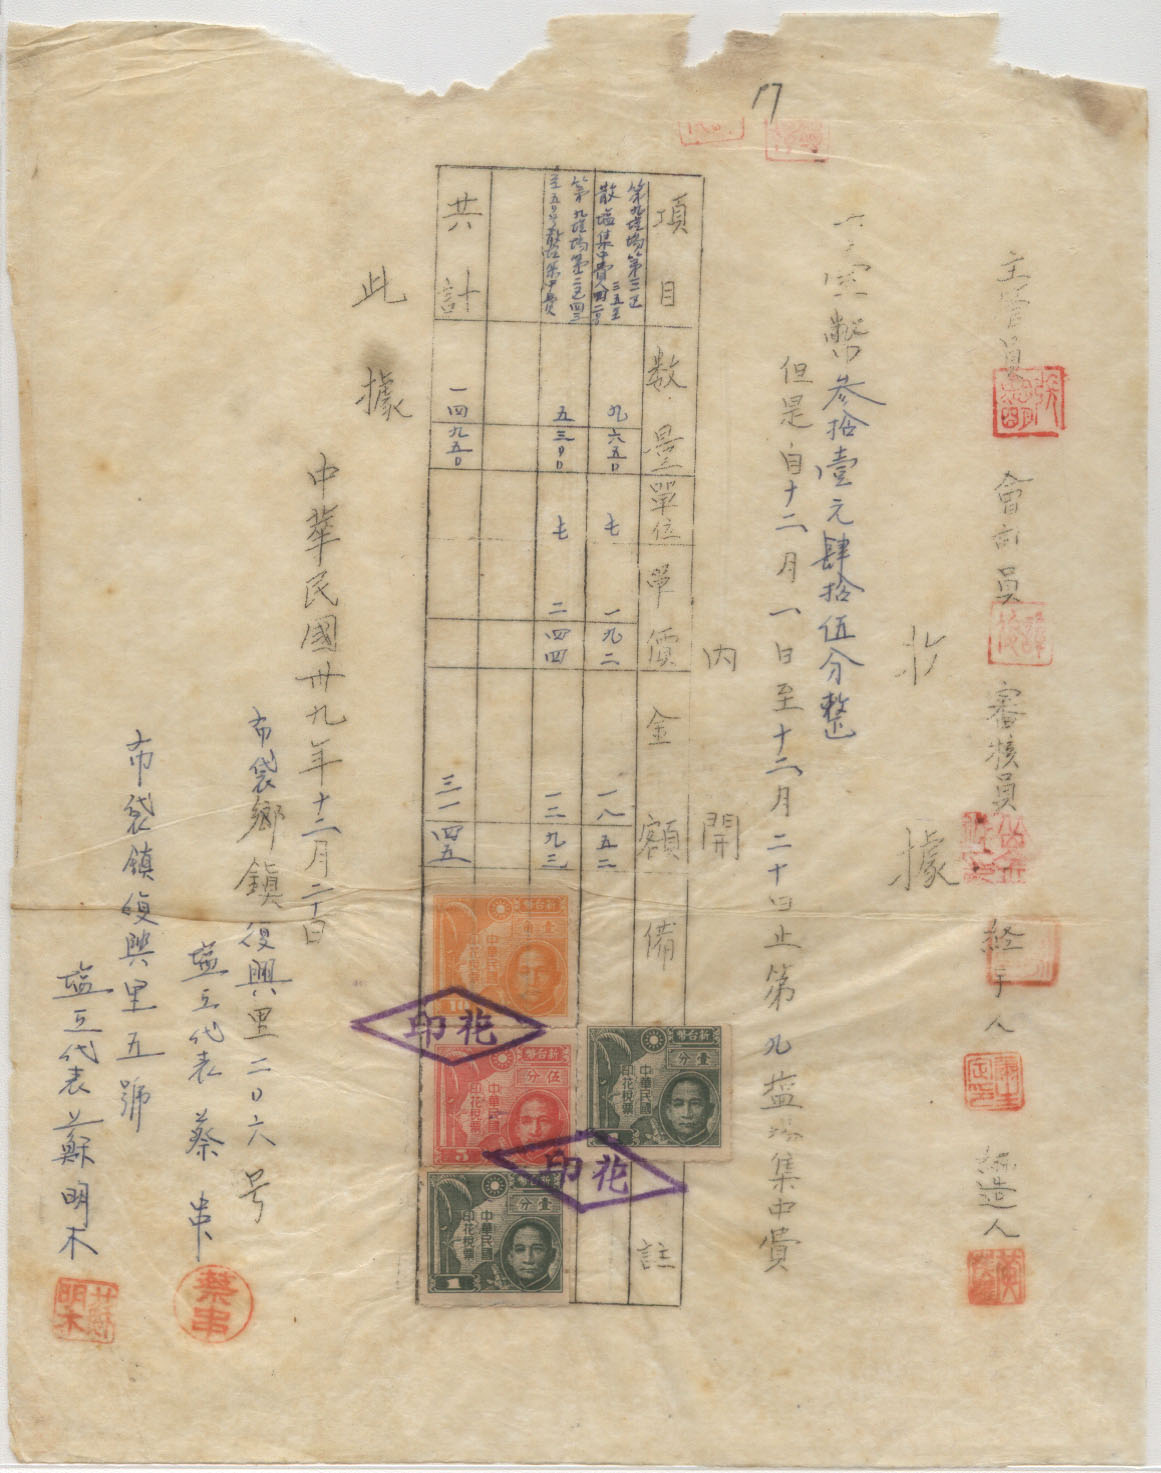 17
主管員 會計員 審核員 經手人 編造人
收據
臺幣叁拾壹元肆拾伍分整
但是自十二月一日至十二月二十日止第九塩場集中費
內開
項目 数量 單位 單價 金額 備註
散塩集中費
九六五〇 七 一九二 一八五二
五三〇〇 七 二四四 一二九三
共計 一四九五〇 三一四五
此據
中華民國卅九年十二月二十日
布袋鄉鎮復興里二〇六号
塩工代表 蔡串
布袋鎮復興里五號
塩工代表 蘇明木
蔡串
蘇明木
新台幣
壹角
中華民國
印花稅票
10
新台幣
伍分
中華民國
印花稅票
5
新台幣
壹分
中華民國
印花稅票
1
新台幣
壹分
中華民國
印花稅票
1
印花
印花